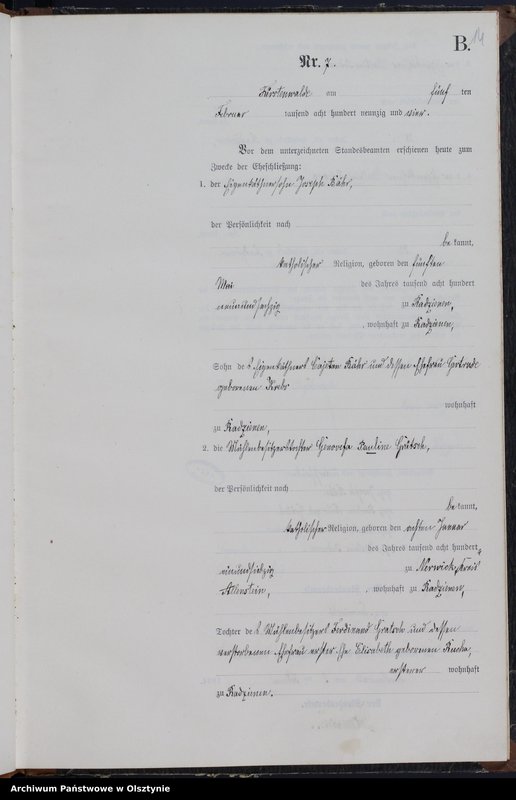 B. 14
Nr. 7.
Fürstenwalde am fünf ten
Februar tausend acht hundert neunzig und vier.
Vor dem unterzeichneten Standesbeamten erschienen heute zum
Zwecke der Eheschließung:
1. der Eigenthümersohn Joseph
der Persönlichkeit nach
be kannt,
katholischer Religion, geboren den fünften
Mai des Jahres tausend acht hundert
neunundsechzig zu Radzienen,
, wohnhaft zu Radzienen,
Sohn de s Eigenthümers und dessen Ehefrau Gertrude
geborenen Krebs
wohnhaft
zu Radzienen,
2. die Mühlenbesitzertochter Genovefa Pauline
der Persönlichkeit nach
be kannt,
katholischer Religion, geboren den achten Januar
des Jahres tausend acht hundert
einundsiebzig zu Nerwick, Kreis
Allenstein, , wohnhaft zu Radzienen,
Tochter de s Mühlenbesitzers Ferdinand und dessen
verstorbenen Ehefrau erster Ehe Elisabeth geborenen
ersterer wohnhaft
zu Radzienen.
Archiwum Państwowe w Olsztynie